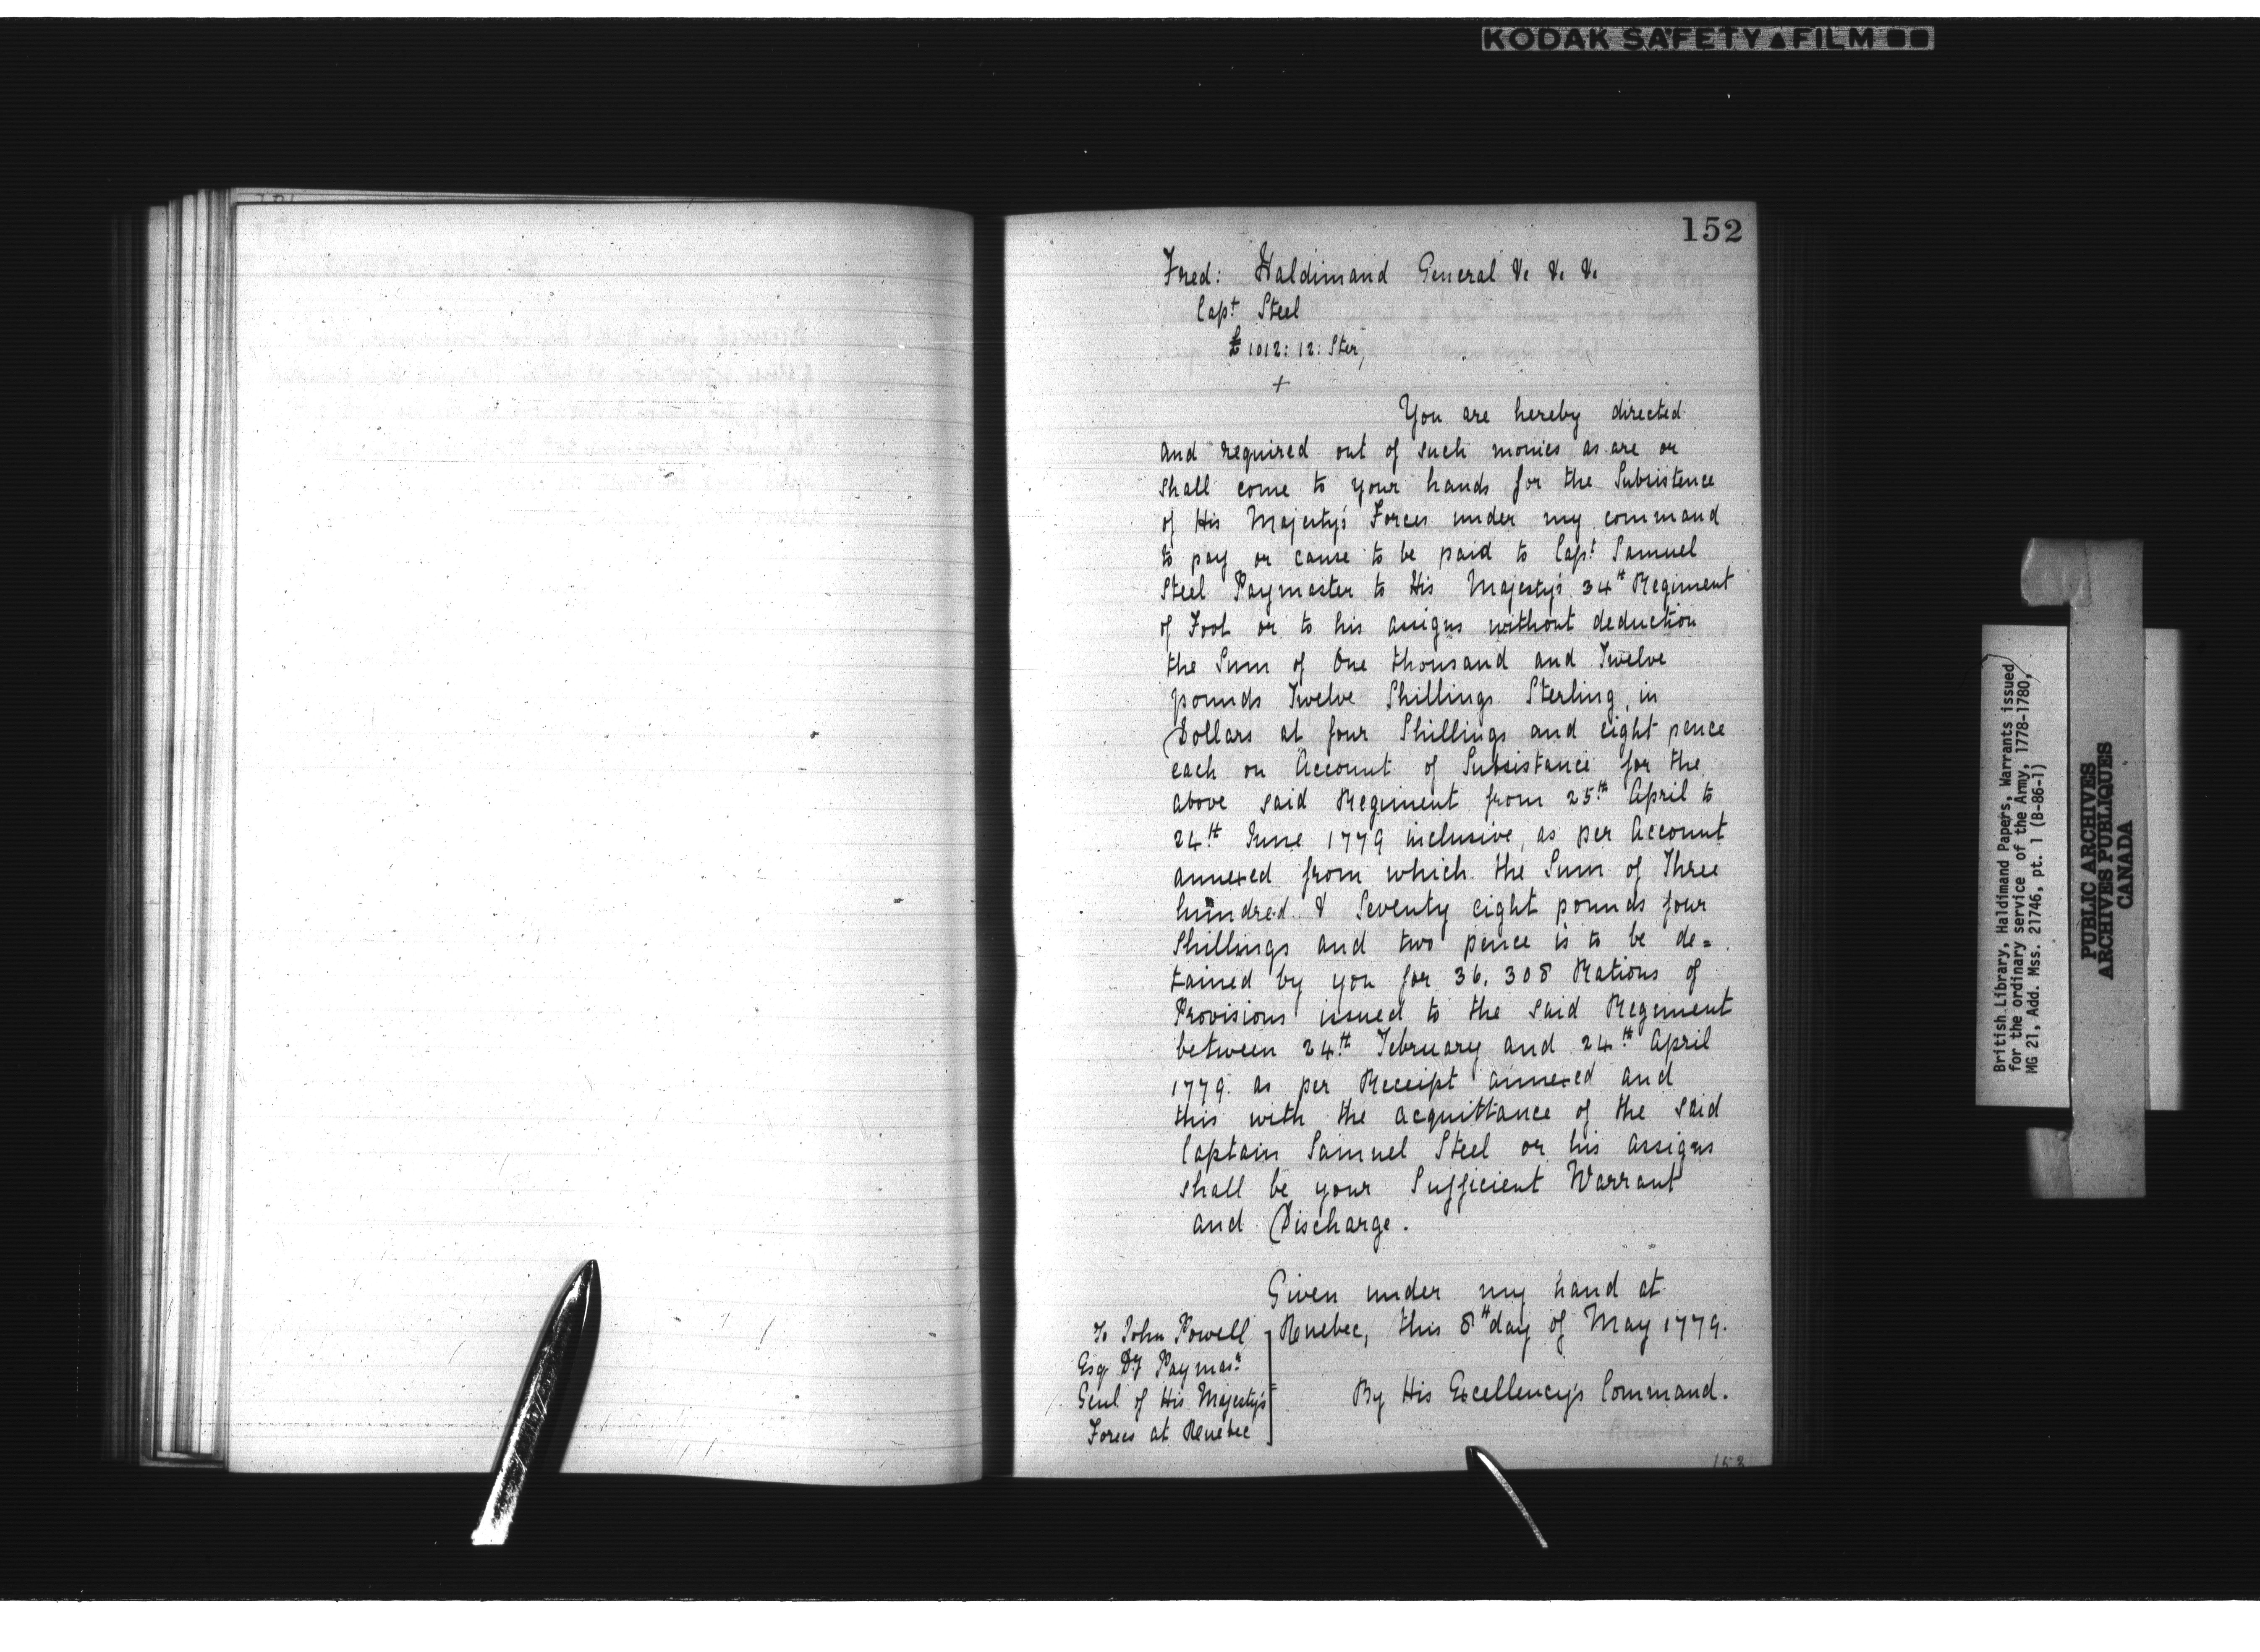 KODAK SAFETY FILM
152
Fred: Haldimand General &c &c &c
Capt Steel
£1012: 12: Ster,
+
You are hereby directed
and required out of such monies as are or
shall come to your hands for the Subsistence
of His Majesty's Forces under my command
to pay or cause to be paid to Capt Samuel
Steel Paymaster to His Majesty's 34th Regiment
of Foot or to his assigns without deduction
the Sum of One thousand and Twelve
pounds Twelve Shillings Sterling, in
Dollars at four Shillings and eight pence
each on Account of Subsistance for the
above said Regiment from 25th April to
24th June 1779 inclusive, as per Account
annexed from which the Sum of Three
hundred & Seventy eight pounds four
Shillings and two pence is to be de=
tained by you for 36,308 Rations of
Provisions issued to the said Regiment
between 24th February and 24th April
1779 as per Receipt annexed and
this with the acquittance of the said
Captain Samuel Steel or his assigns
shall be your Sufficient Warrant
and Discharge.
Given under my hand at
Quebec, this 8th day of May 1779.
By His Excellency's Command.
To John Powell
Esq Dy Paymasr
Genl of His Majesty's
Forces at Quebec
153
British Library, Haldimand Papers, Warrants issued
for the ordinary service of the Army, 1778-1780,
MG 21, Add. Mss. 21746, pt. 1 (B-86-1)
PUBLIC ARCHIVES
ARCHIVES PUBLIQUES
CANADA